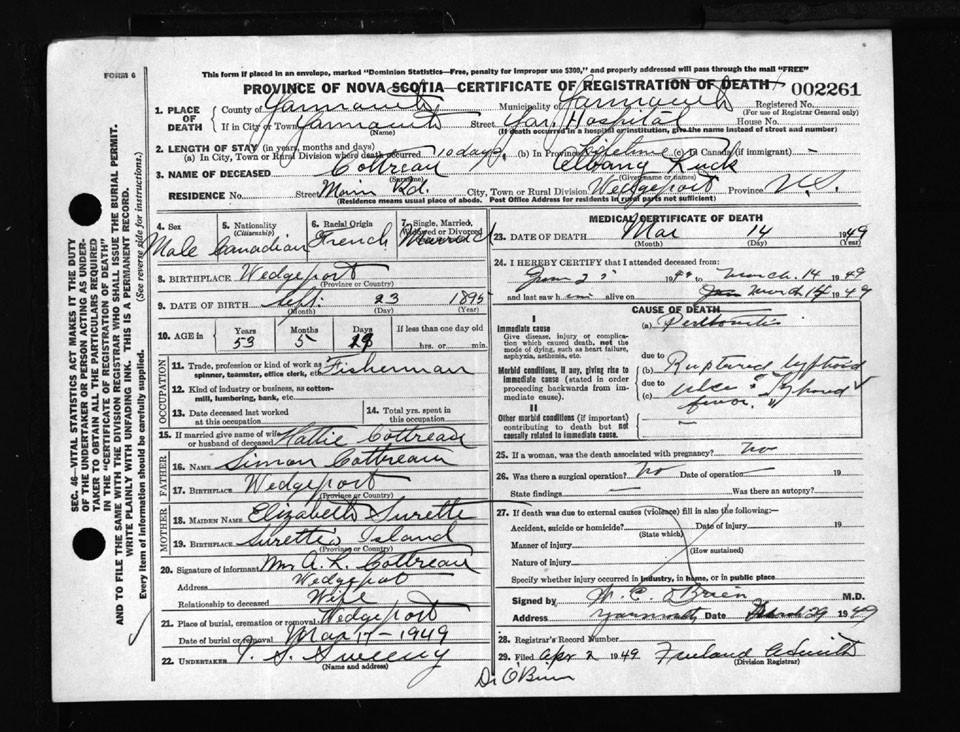 FORM 6
This form if placed in an envelope, marked "Dominion Statistics—Free, penalty for improper use $300," and properly addressed will pass through the mail "FREE"
PROVINCE OF NOVA SCOTIA—CERTIFICATE OF REGISTRATION OF DEATH 002261
1. PLACE OF DEATH County of Yarmouth Municipality of Yarmouth Registered No.
(For use of Registrar General only)
If in City or Town Yarmouth Street Yar. Hospital House No.
(Name) (If death occurred in a hospital or institution, give the name instead of street and number)
2. LENGTH OF STAY (in years, months and days)
(a) In City, Town or Rural Division where death occurred 10 days (b) In Province Lifetime (c) In Canada (if immigrant) -
3. NAME OF DECEASED Cottreau Albany Luck
(Surname) (Given name or names)
RESIDENCE No. Street Main Rd. City, Town or Rural Division Wedgeport Province N.S.
(Residence means usual place of abode. Post Office Address for residents in rural parts not sufficient)
4. Sex
Male
5. Nationality (Citizenship)
Canadian
6. Racial Origin
French
7. Single, Married, Widowed or Divorced
Married
8. BIRTHPLACE Wedgeport
(Province or Country)
9. DATE OF BIRTH Sept. 23 1895
(Month) (Day) (Year)
10. AGE in Years Months Days If less than one day old
53 5 hrs. or min.
OCCUPATION
11. Trade, profession or kind of work as spinner, teamster, office clerk, etc. Fisherman
12. Kind of industry or business, as cotton-mill, lumbering, bank, etc.
13. Date deceased last worked at this occupation
14. Total yrs. spent in this occupation
15. If married give name of wife or husband of deceased Hattie Cottreau
FATHER
16. NAME Simon Cottreau
17. BIRTHPLACE Wedgeport
(Province or Country)
MOTHER
18. MAIDEN NAME Elizabeth Surette
19. BIRTHPLACE Surette's Island
(Province or Country)
20. Signature of informant Mrs A. L. Cottreau
Address Wedgeport
Relationship to deceased Wife
21. Place of burial, cremation or removal Wedgeport
Date of burial or removal Mar 17-1949
22. UNDERTAKER Sweeny
(Name and address)
MEDICAL CERTIFICATE OF DEATH
23. DATE OF DEATH Mar 14 1949
(Month) (Day) (Year)
24. I HEREBY CERTIFY that I attended deceased from:
19 to March 14 1949
and last saw him alive on March 14 1949
CAUSE OF DEATH
I
Immediate cause
Give disease, injury or complication which caused death, not the mode of dying, such as heart failure, asphyxia, asthenia, etc.
(a) Peritonitis
due to
Morbid conditions, if any, giving rise to immediate cause (stated in order proceeding backwards from immediate cause).
(b) Ruptured typhoid
due to
(c) ulcer typhoid
fever
II
Other morbid conditions (if important) contributing to death but not causally related to immediate cause.
25. If a woman, was the death associated with pregnancy? No
26. Was there a surgical operation? No Date of operation 19
State findings Was there an autopsy?
27. If death was due to external causes (violence) fill in also the following:—
Accident, suicide or homicide? Date of injury 19
(State which)
Manner of injury
(How sustained)
Nature of injury
Specify whether injury occurred in industry, in home, or in public place
Signed by O'Brien M.D.
Address Yarmouth Date March 29 1949
28. Registrar's Record Number
29. Filed Apr 2 1949 Smith
(Division Registrar)
Dr O'Brien
SEC. 46—VITAL STATISTICS ACT MAKES IT THE DUTY OF THE UNDERTAKER OR PERSON ACTING AS UNDERTAKER TO OBTAIN ALL THE PARTICULARS REQUIRED IN THE "CERTIFICATE OF REGISTRATION OF DEATH" AND TO FILE THE SAME WITH THE DIVISION REGISTRAR WHO SHALL ISSUE THE BURIAL PERMIT.
WRITE PLAINLY WITH UNFADING INK. THIS IS A PERMANENT RECORD.
Every item of information should be carefully supplied. (See reverse side for instructions.)